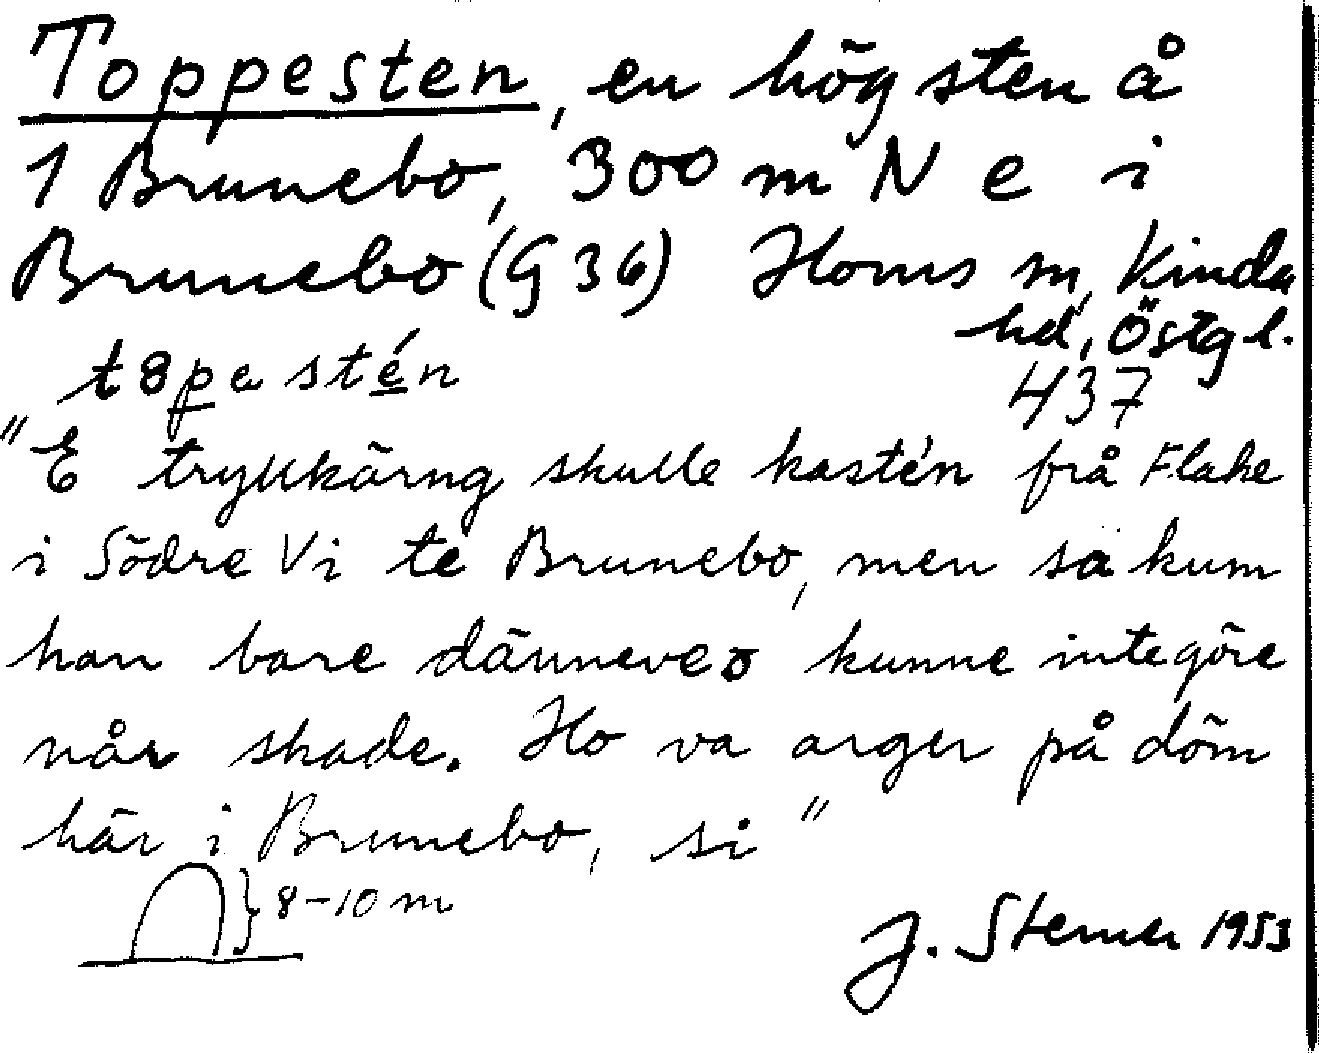 Toppesten, en hög sten å
1 Brunebo, 300 m N e i
Brunebo (G 36) Horns sn, Kinda
hd, Östgl.
t8pestén
437
"E tryllkäring skulle kastén frå Flake
i Södre Vi te Brunebo, men så kum
han bare dänneve o kunne inte göre
når skade. Ho va arger på döm
här i Brunebo, si"
8-10 m
J. Stenes 1953